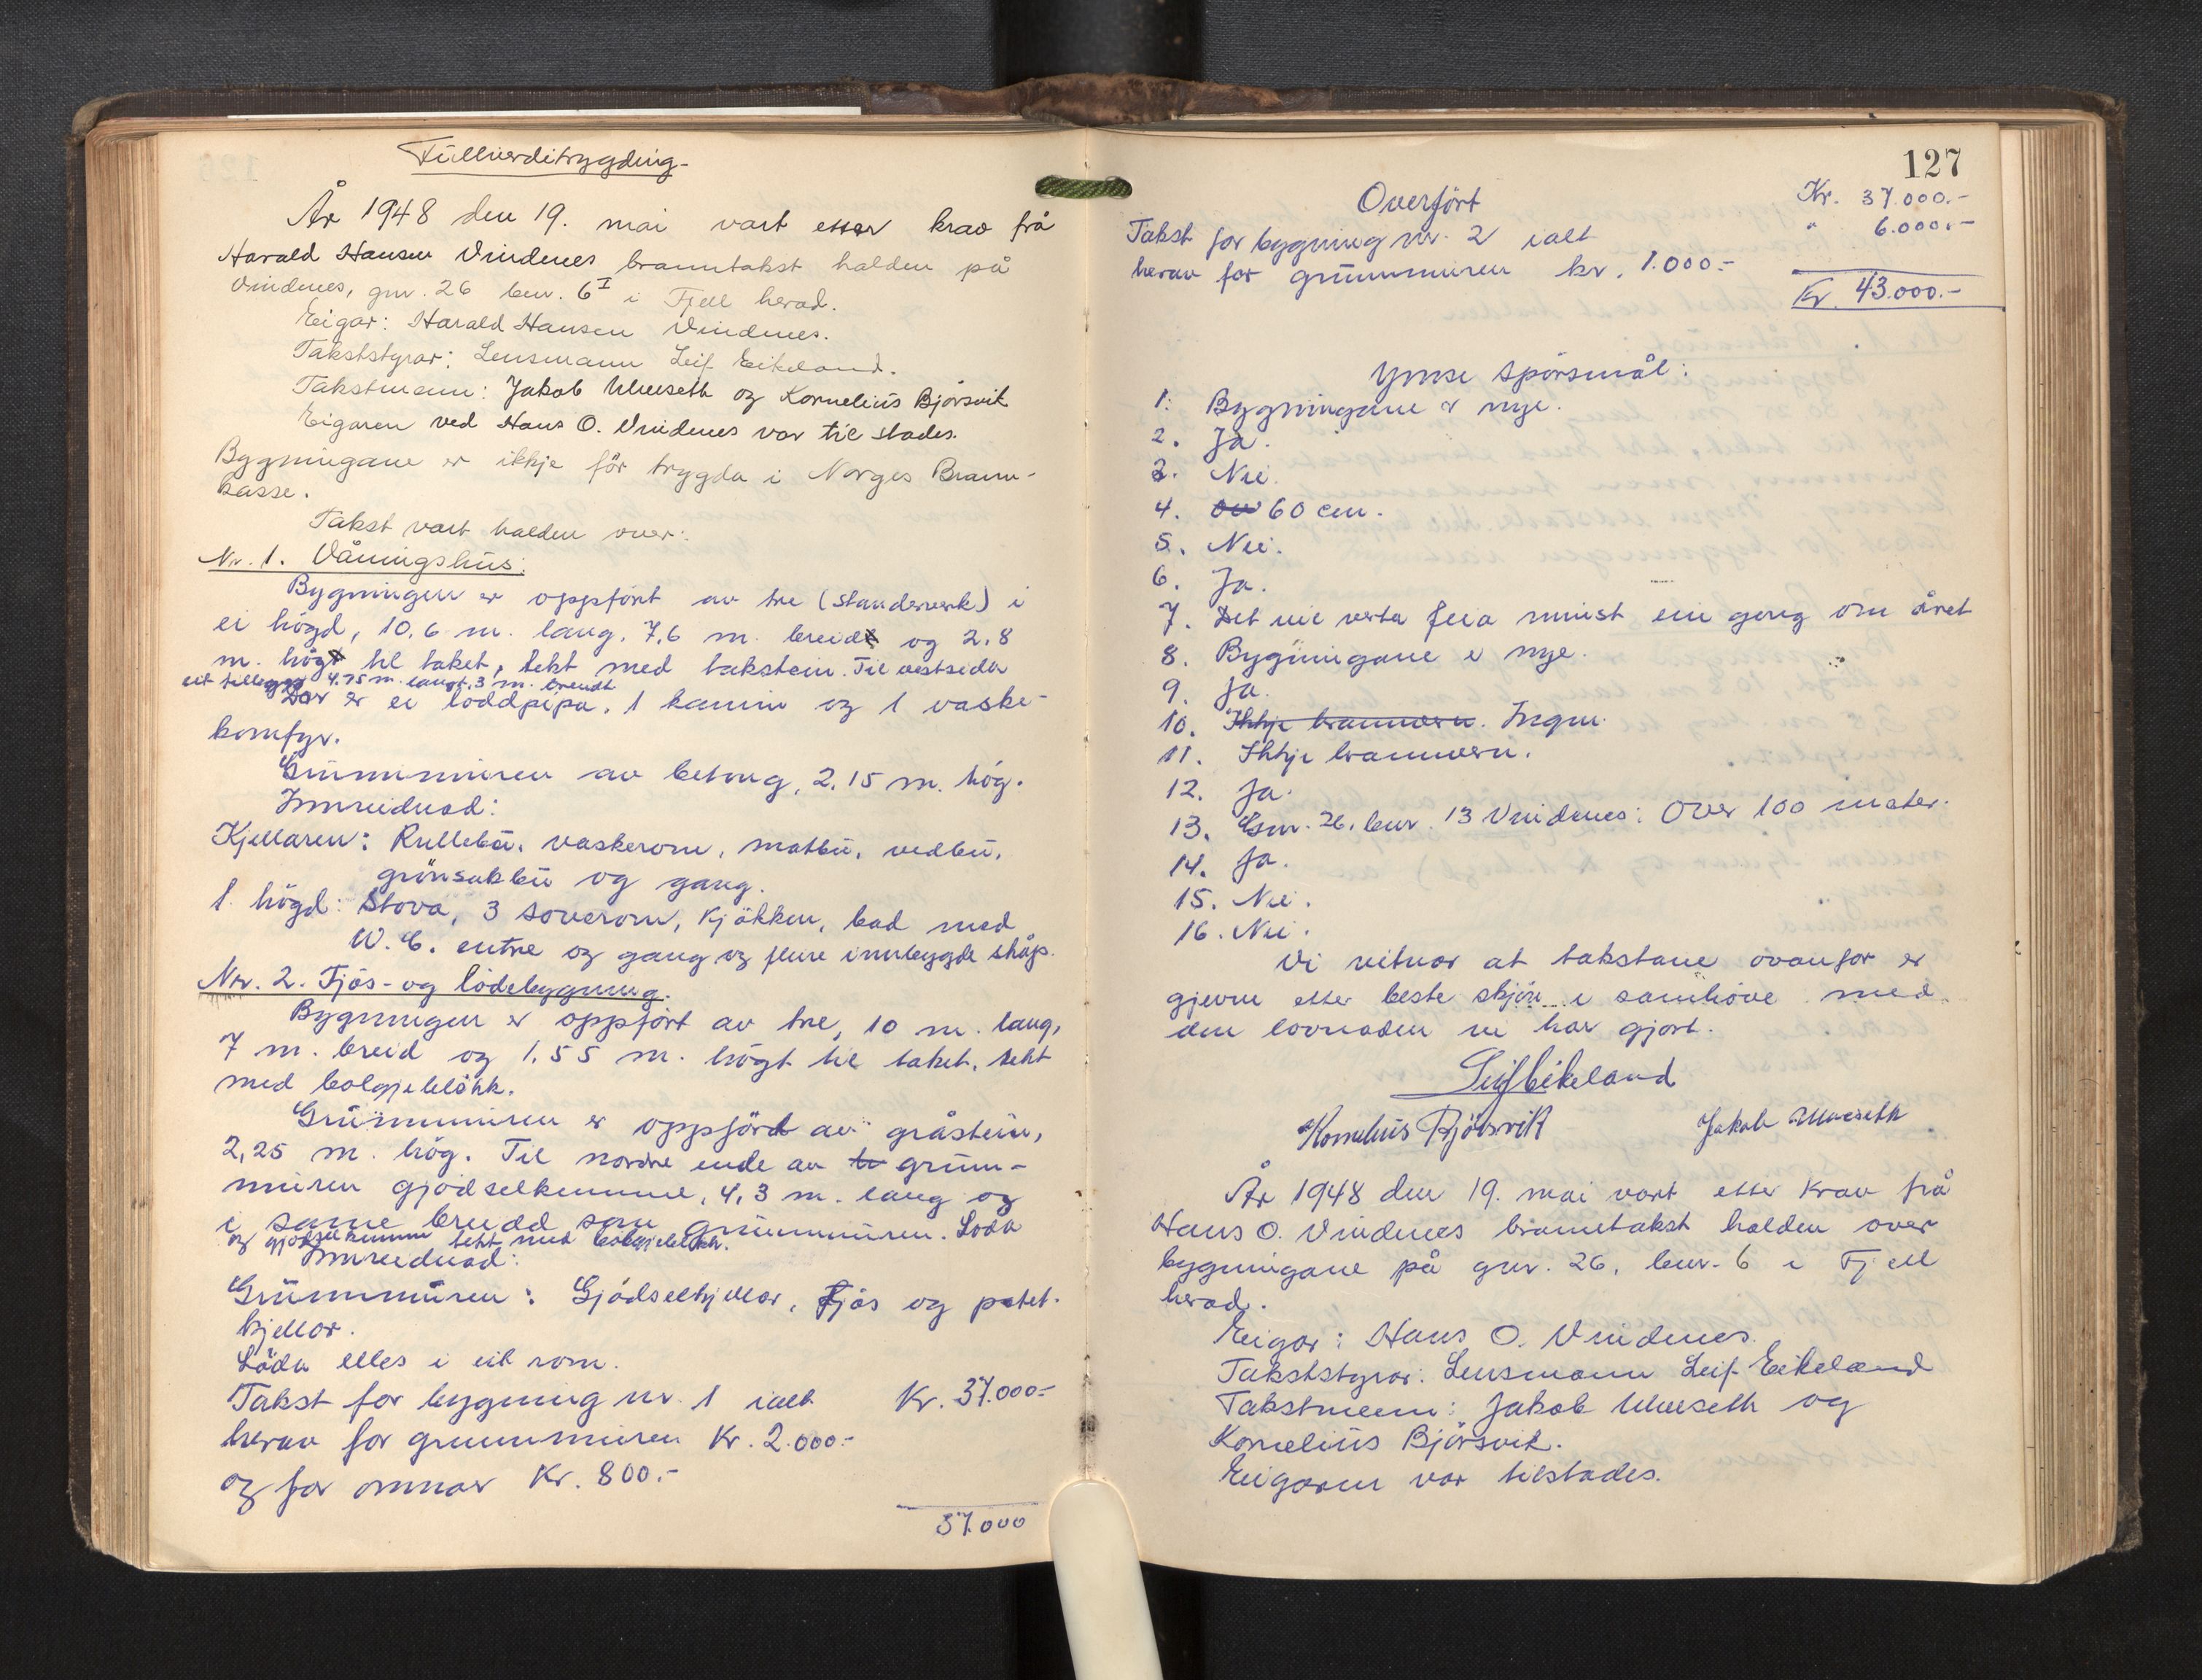 Fullverditrygding.
År 1948 den 19. mai vart etter krav frå
Harald Hansen Vindenes branntakst halden på
Vindenes, gnr. 26 bnr. 6 I i Fjell herad.
Eigar: Harald Hansen Vindenes.
Takststyrar: Lensmann Leif Eikeland.
Takstmenn: Jakob Ulveseth og Kornelius Bjørsvik
Eigaren ved Hans O. Vindenes var til stades.
Bygningane er ikkje för trygda i Norges Brann-
kasse.
Takst vart halden over:
Nr. 1. Våningshus:
Bygningen er oppfört av tre (standerverk) i
ei högd, 10,6 m. lang, 7,6 m. breid og 2,8
m. hög til taket, tekt med takstein. Til vestsida
eit tillegg 4,75 m. langt, 3 m. breidt
Der er ei loddpipa, 1 kamin og 1 vaske-
komfyr.
Grunnmuren av betong, 2,15 m. hög.
Innreidnad:
Kjellaren: Rullebu, vaskerom, matbu, vedbu,
grönsakbu og gang.
1. högd: Stova, 3 soverom, kjökken, bad med
W.C. entre og gang og fleire innbygde skåp.
Nr. 2. Fjös- og lödebygning.
Bygningen er oppfört av tre, 10 m. lang,
7 m. breid og 1,55 m. högt til taket, tekt
med bølgjeblikk.
Grunnmuren er oppförd av gråstein,
2,25 m. hög. Til nordre ende av grunn-
muren gjödselkumme, 4,3 m. lang og
i same breidd som grunnmuren. Löda
og gjödselkumme tekt med bølgjeblekk.
Innreidnad:
Grunnmuren: Gjödselkjellar, fjös og potet-
kjellar.
Löda elles i eit rom.
Takst for bygning nr. 1 ialt Kr. 37.000.-
herav for grunnmuren Kr. 2.000.-
og for omnar Kr. 800.-
37.000
127
Overfört Kr. 37.000.-
Takst for bygning nr. 2 ialt " 6.000.-
herav for grunnmuren kr. 1.000.-
Kr. 43.000.-
Ymse spörsmål:
1. Bygningane er nye.
2. Ja.
3. Nei.
4. 60 cm.
5. Nei.
6. Ja.
7. Det vil verta feia minst ein gong om året
8. Bygningane er nye.
9. Ja.
10. Ikkje brannvern. Ingen.
11. Ikkje brannvern.
12. Ja.
13. Gnr. 26, bnr. 13 Vindenes: Over 100 meter.
14. Ja.
15. Nei.
16. Nei.
Vi vitnar at takstane ovanfor er
gjevne etter beste skjön i samhöve med
den lovnaden vi har gjort.
Leif Eikeland
Kornelius Bjørsvik Jakob Ulveseth
År 1948 den 19. mai vart etter krav frå
Hans O. Vindenes branntakst halden over
bygningane på gnr. 26, bnr. 6 i Fjell
herad.
Eigar: Hans O. Vindenes.
Takststyrar: Lensmann Leif Eikeland
Takstmenn: Jakob Ulveseth og
Kornelius Bjørsvik.
Eigaren var tilstades.